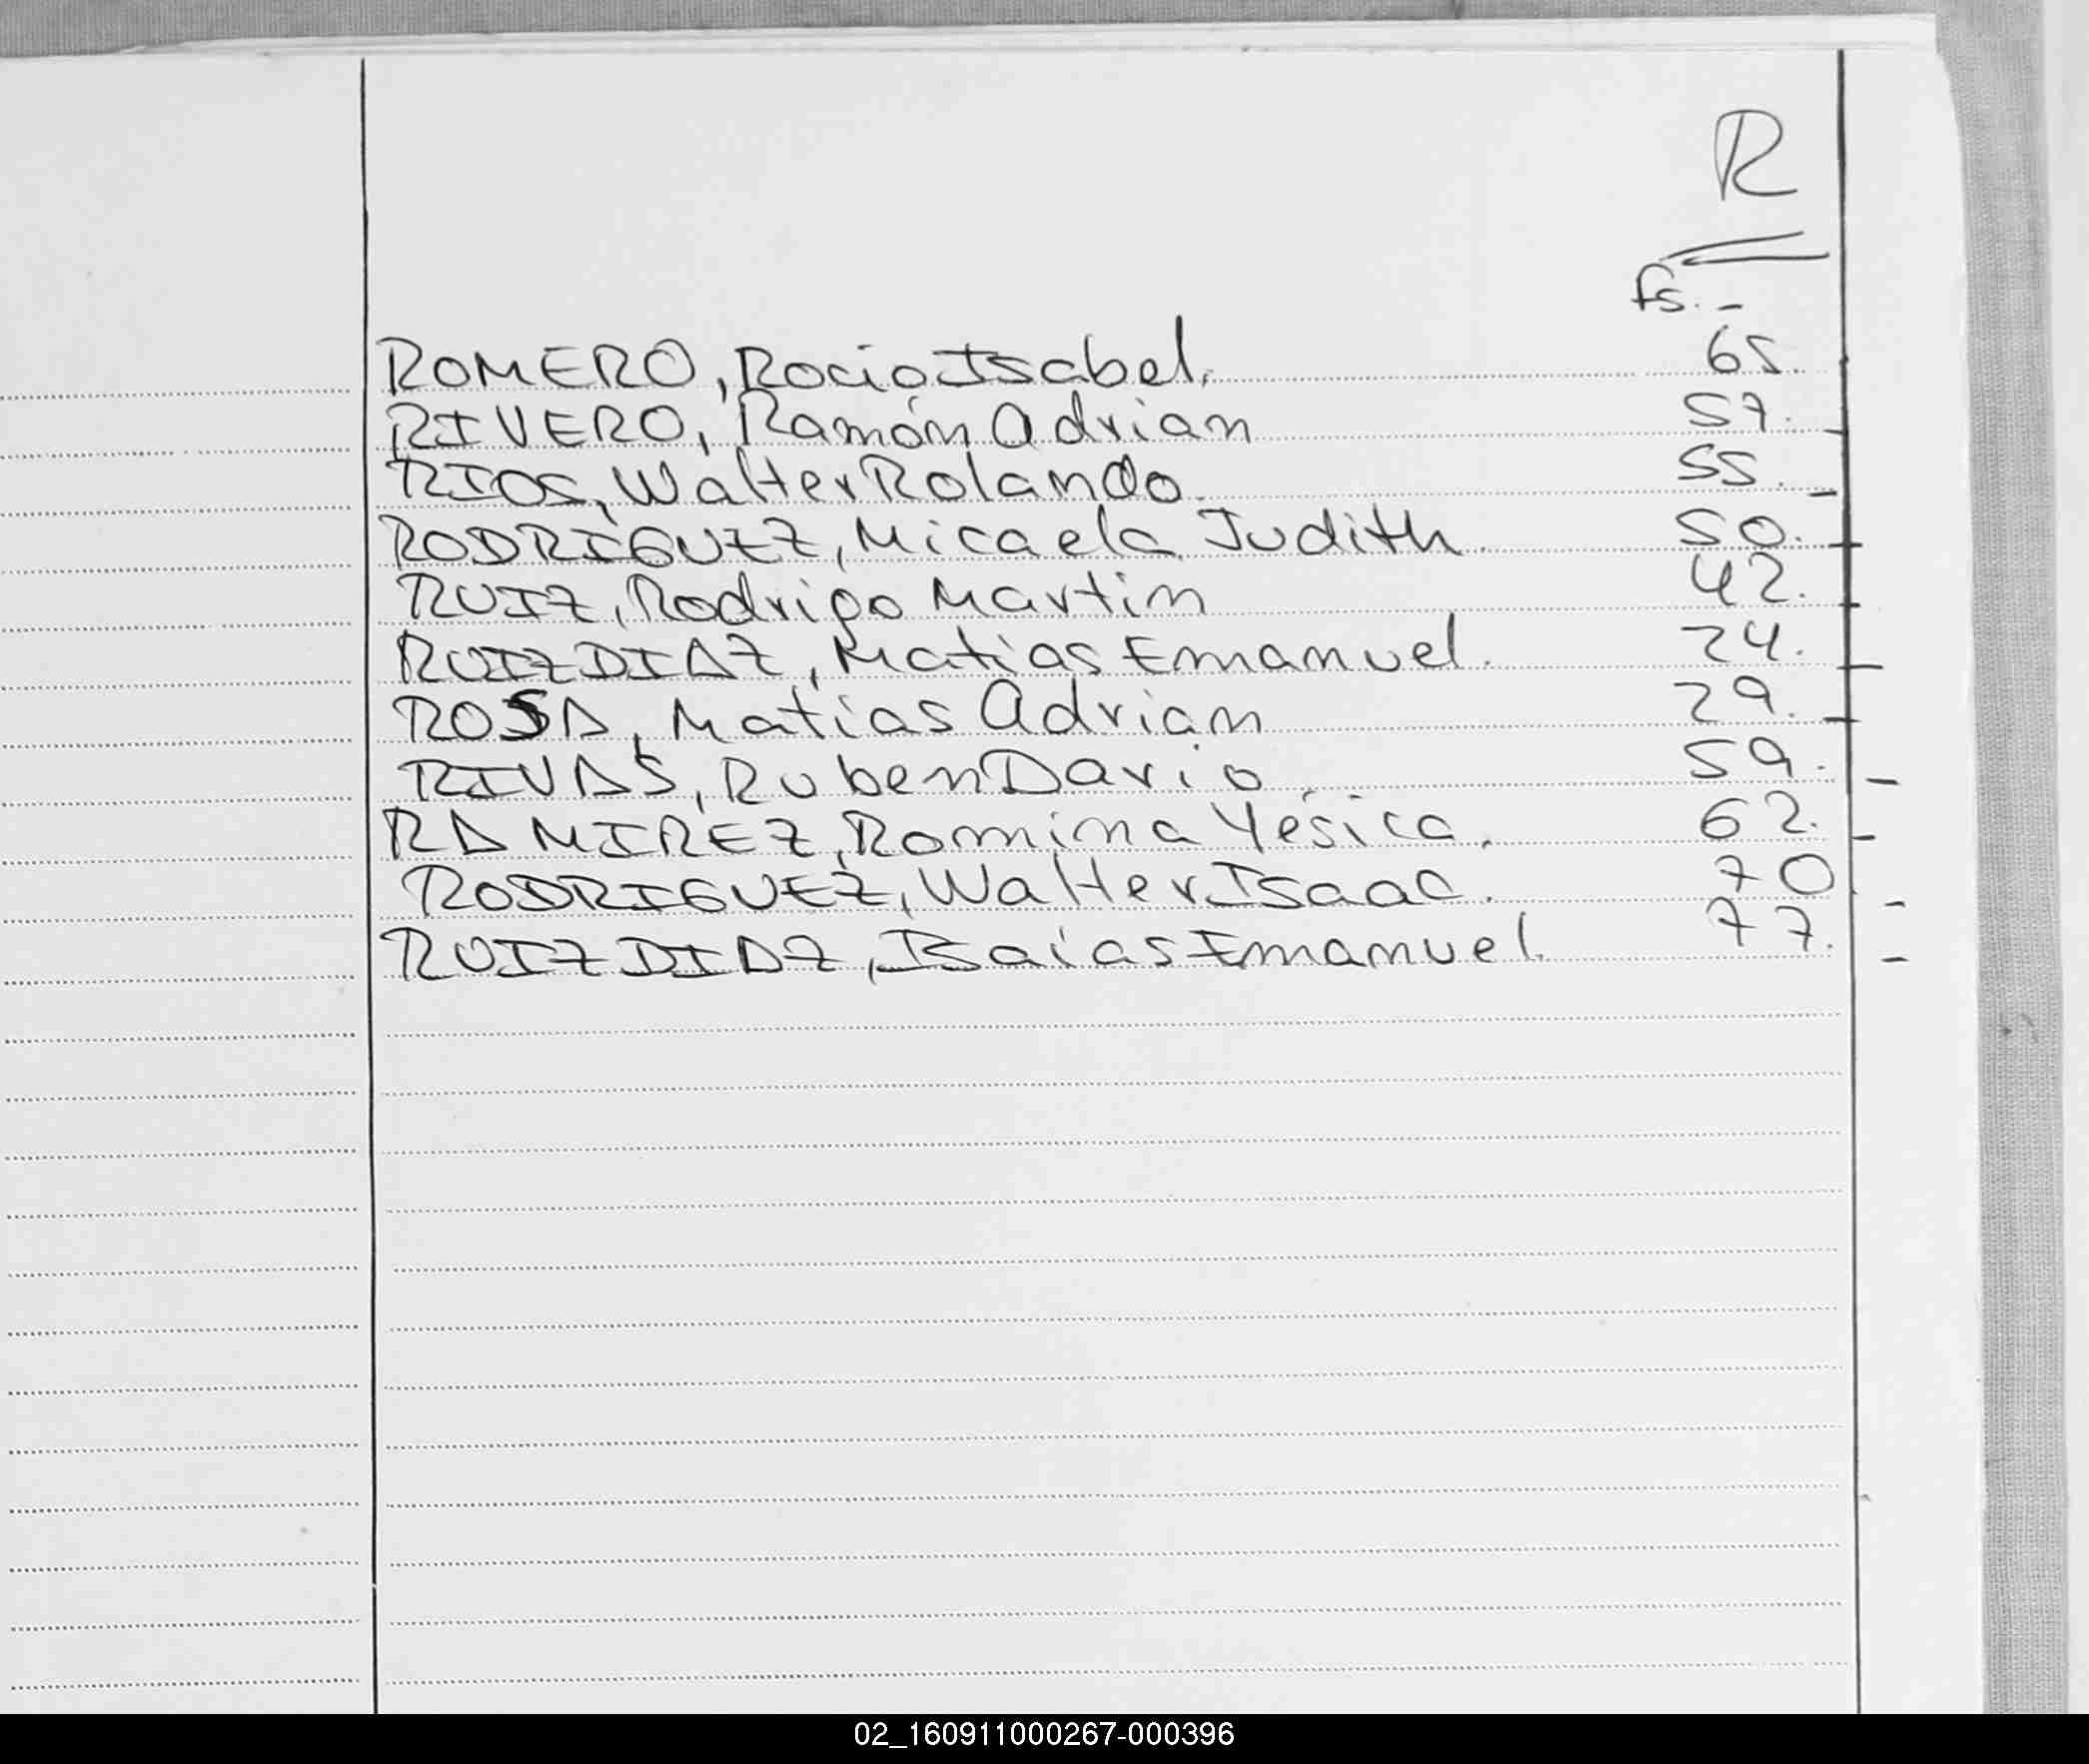 R
fs. -
ROMERO, Rocio Isabel. 65.
RIVERO, Ramón Adrian 57. -
RIOS, Walter Rolando. 55. -
RODRIGUEZ, Micaela Judith. 50. -
RUIZ, Rodrigo Martin 42. -
RUIZ DIAZ, Matias Emanuel. 24. -
ROSA, Matias Adrian 29. -
RIVAS, Ruben Dario. 59. -
RAMIREZ, Romina Yésica. 62. -
RODRIGUEZ, Walter Isaac. 70. -
RUIZ DIAZ, Isaias Emanuel. 77. -
02_160911000267-000396